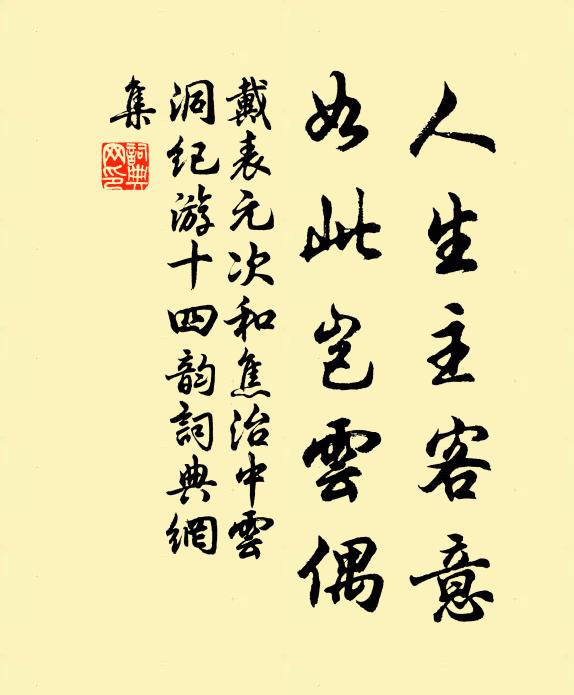 人生主客意
如此豈雲偶
戴表元次和焦治中雲
洞紀游十四韵詞典網
集
詞典
网印